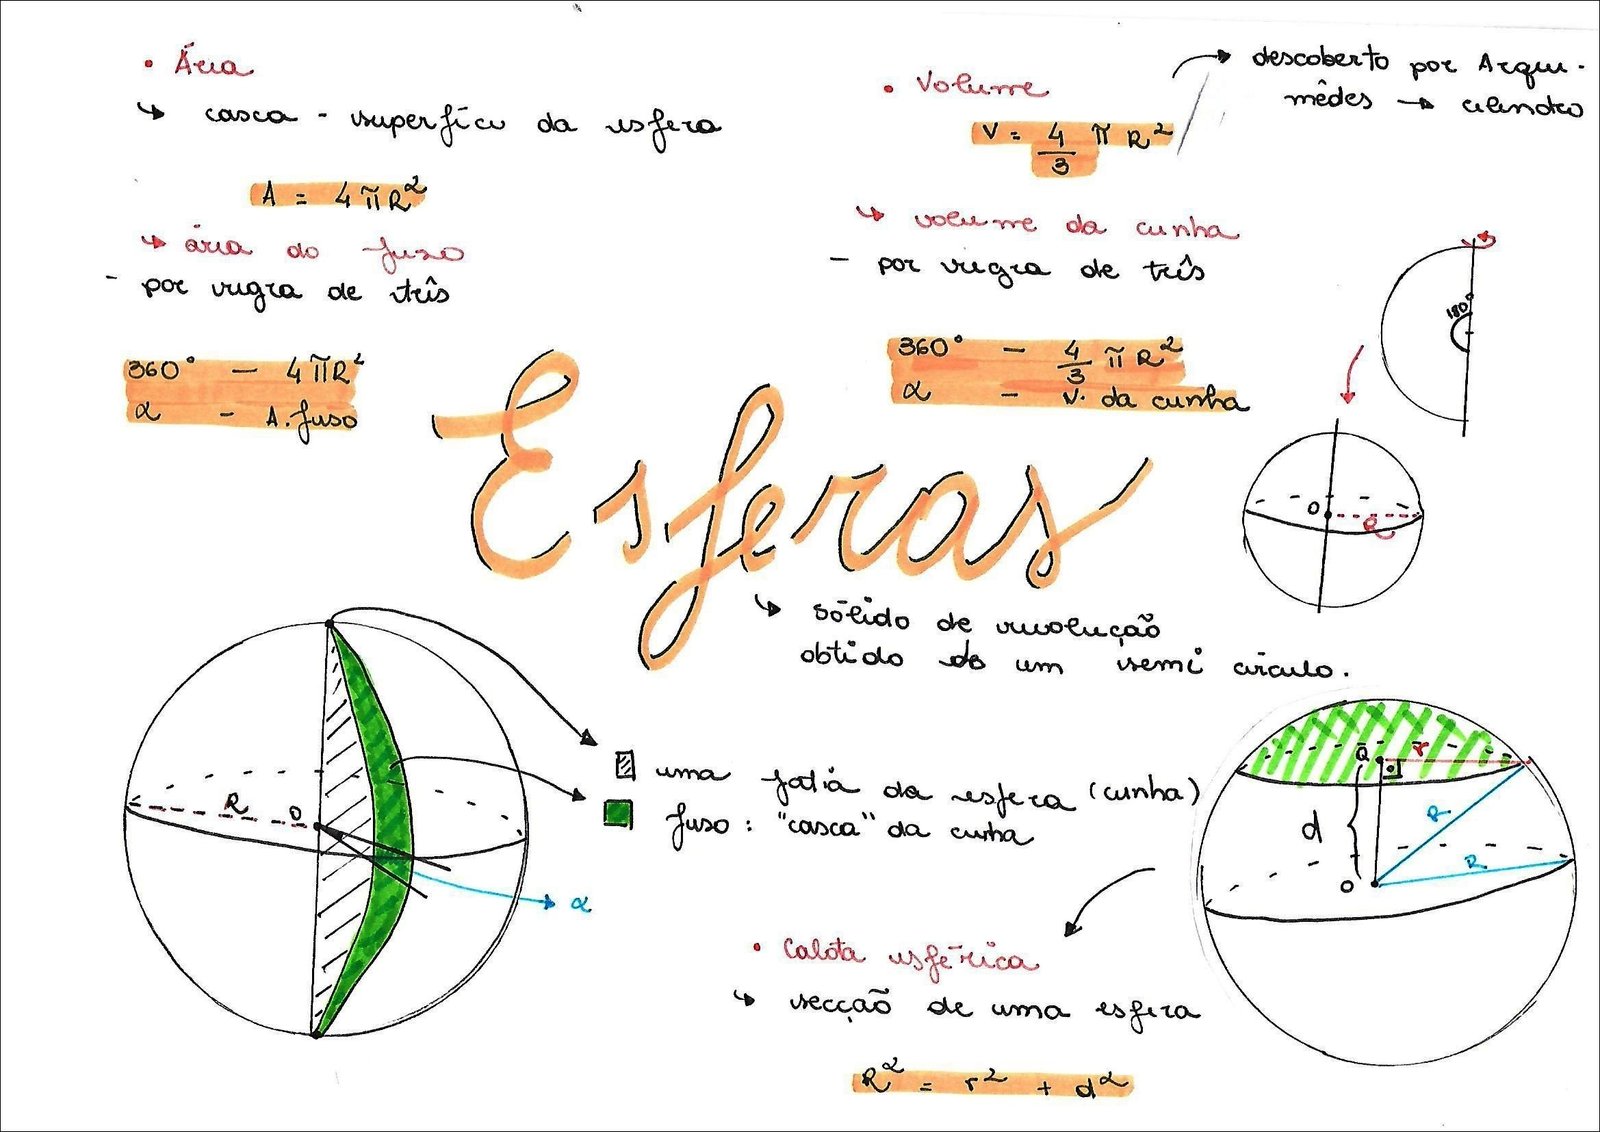 • Área
↳ casca - superfície da esfera
A = 4πR²
↳ área do fuso
- por regra de três
360° — 4πR²
α - A. fuso
• Volume
descoberto por Arqui-
mêdes → cilindro
V = 4/3 π R²
↳ volume da cunha
- por regra de três
360° — 4/3 π R²
α - V. da cunha
180°
O
R
Esferas
↳ sólido de revolução
obtido de um semi círculo.
R
O
α
uma fatia da esfera (cunha)
fuso: "casca" da cunha
Q
r
d
R
R
O
• Calota esférica
↳ secção de uma esfera
R² = r² + d²